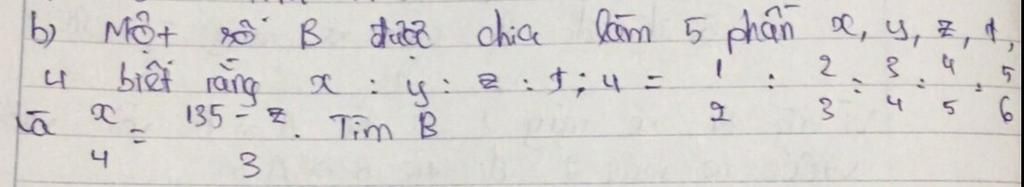 b) Một số B được chia làm 5 phần x, y, z, t,
u biết rằng x : y : z : t : u = 1/2 : 2/3 : 3/4 : 4/5 : 5/6
và x/4 = 135 - z/3. Tìm B